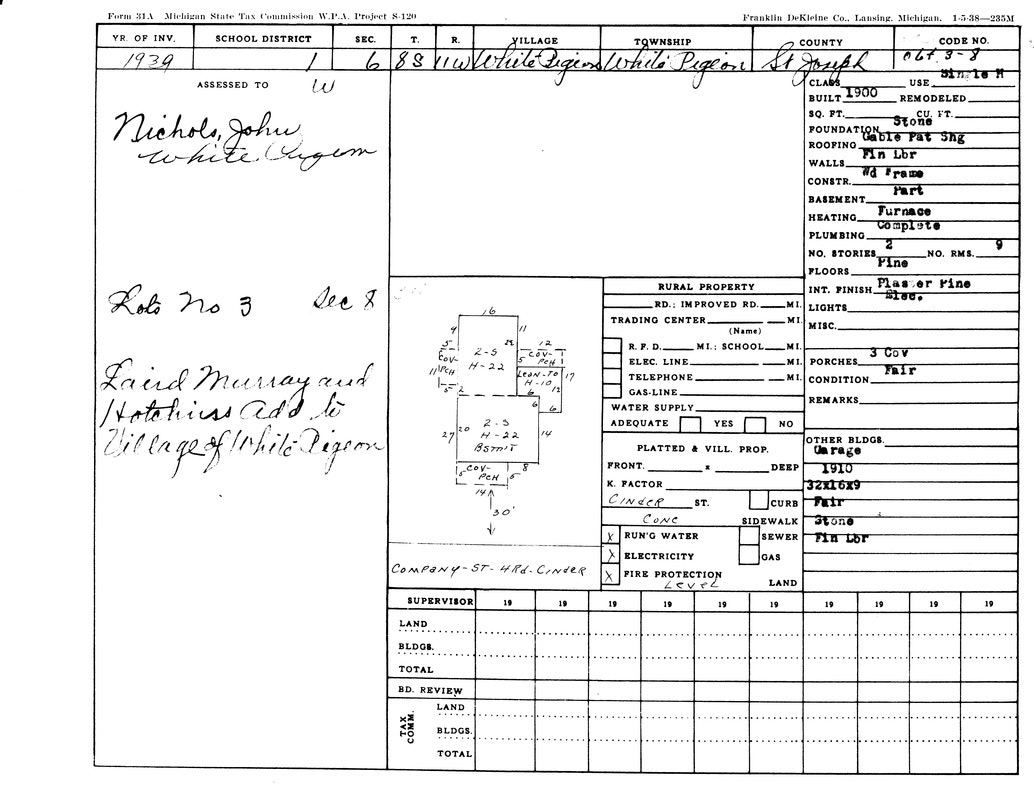 Form 31A Michigan State Tax Commission W.P.A. Project S-120
Franklin DeKleine Co., Lansing, Michigan. 1-5-38—235M
YR. OF INV. SCHOOL DISTRICT SEC. T. R. VILLAGE TOWNSHIP COUNTY CODE NO.
1939 1 6 8S 11W White Pigeon White Pigeon St Joseph
ASSESSED TO W
Nichols, John
White Pigeon
Lots No 3 Sec 8
Laird Murray and
Hotchiss Add to
Village of White Pigeon
16
9 11
2-S
H-22
22
5
COV-
PCH
11
5
2
12
5 COV-
PCH
LEAN-TO
H-10
17
6 12
6 6
2-S
H-22
BSMT
27 20 14
COV-
PCH
5 5 8
14
30'
COMPANY-ST-HRd-CINDER
RURAL PROPERTY
RD.; IMPROVED RD. MI.
TRADING CENTER MI.
(Name)
R. F. D. MI.; SCHOOL MI.
ELEC. LINE MI.
TELEPHONE MI.
GAS-LINE
WATER SUPPLY
ADEQUATE YES NO
PLATTED & VILL. PROP.
FRONT. x DEEP
K. FACTOR
CINDER ST. CURB
CONC SIDEWALK
X RUN'G WATER SEWER
X ELECTRICITY GAS
X FIRE PROTECTION
LEVEL LAND
CLASS USE Single H
BUILT 1900 REMODELED
SQ. FT. CU. FT.
FOUNDATION Stone
ROOFING Gable Pat Shg
WALLS Fin Lbr
CONSTR. Wd Frame
BASEMENT Part
HEATING Furnace
PLUMBING Complete
NO. STORIES 2 NO. RMS. 9
FLOORS Pine
INT. FINISH Plaster Pine
LIGHTS Elec.
MISC.
PORCHES 3 Cov
CONDITION Fair
REMARKS
OTHER BLDGS.
Garage
1910
32x16x9
Fair
Stone
Fin Lbr
SUPERVISOR 19 19 19 19 19 19 19 19 19 19
LAND
BLDGS.
TOTAL
BD. REVIEW
TAX COMM.
LAND
BLDGS.
TOTAL